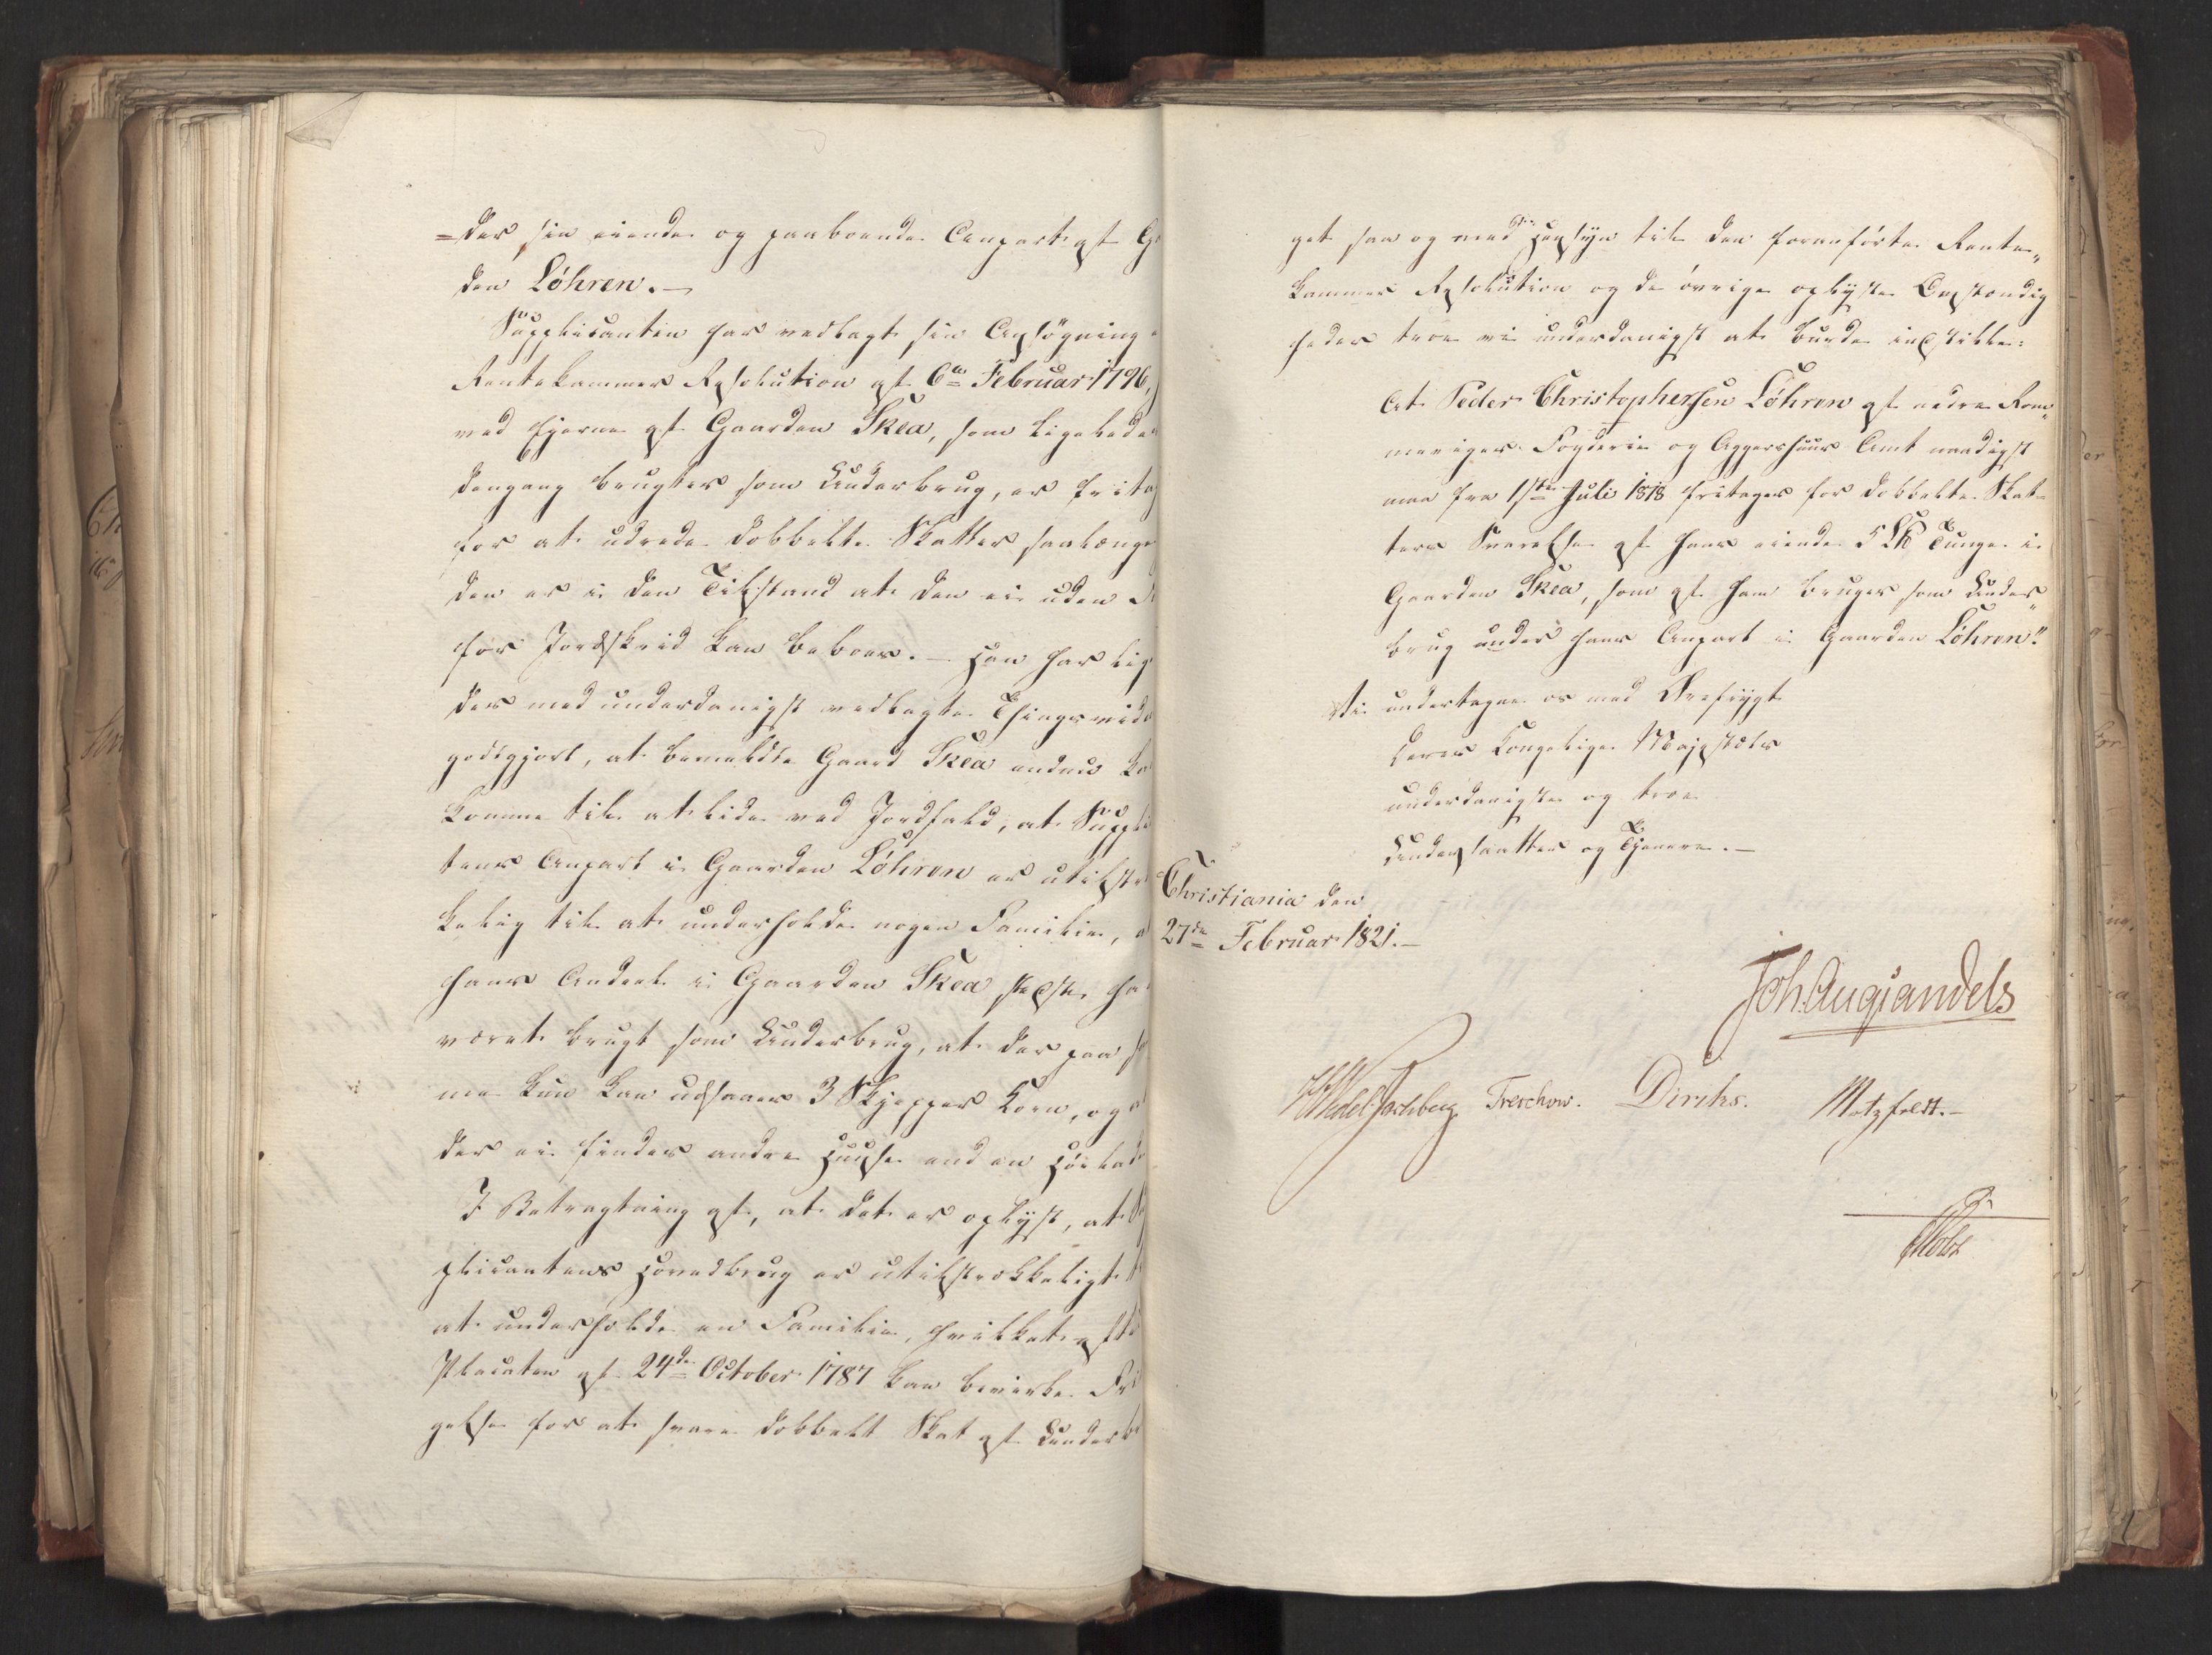 =der sin eiende og paaboende Anpart af G
den Löhren.—
Supplicanten har vedlagt sin Ansögning
Rentekammer Resolution af 6te Februar 1796,
ved Ejerne af Gaarden Skea, som ligeledes
dengang brugtes som Underbrug, er fritag
for at udrede dobbelte Skatter, saalænge
den er i den Tilstand at den ei uden F
for Jordskred kan beboes.— Han har lig
des med underdanigst vedlagte Thingsvid
godtgjort, at bemeldte Gaard Skea endnu ka
komme til at lide ved Jordfald, at Suppli
tens Anpart i Gaarden Löhren er utilstræ
kelig til at underholde nogen Familie, a
hans Andeel i Gaarden Skea stedse ha
været brugt som Underbrug, at der paa s
me kun kan udsaaes 3 Skjepper Korn, og a
der ei findes andre Huuse end en Höelade
I Betragtning af, at det er oplyst, at S
plicantens Hovedbrug er utilstrækkeligt t
at underholde en Familie, hvilket efte
Placaten af 24de October 1787 kan bevirke Fri
gelse for at svare dobbelt Skat af Underbr
get saa og med Hensyn til den foranförte Rente„
kammer Resolution og de övrige oplyste Omstændig
heder troe vi underdanigst at burde indstille:
At Peder Christophersen Löhren af nedre Rom„
meriges Fogderie og Aggershuus Amt naadigst
maa fra 1ste Juli 1818 fritages for dobbelte Skat-
ters Svarelse af hans eiende 5 L℔ Tunge i
Gaarden Skea, som af ham bruges som Under„
brug under hans Anpart i Gaarden Löhren."
Vi undertegne os med Ærefrygt
Deres Kongelige Majestæts
underdanigste og troe
Undersaatter og Tjenere.—
Christiania den
27de Februar 1821.—
Joh. Aug. Sandels
HWedel Jarlsberg Treschow. Diriks. Motzfeldt.—
Holst